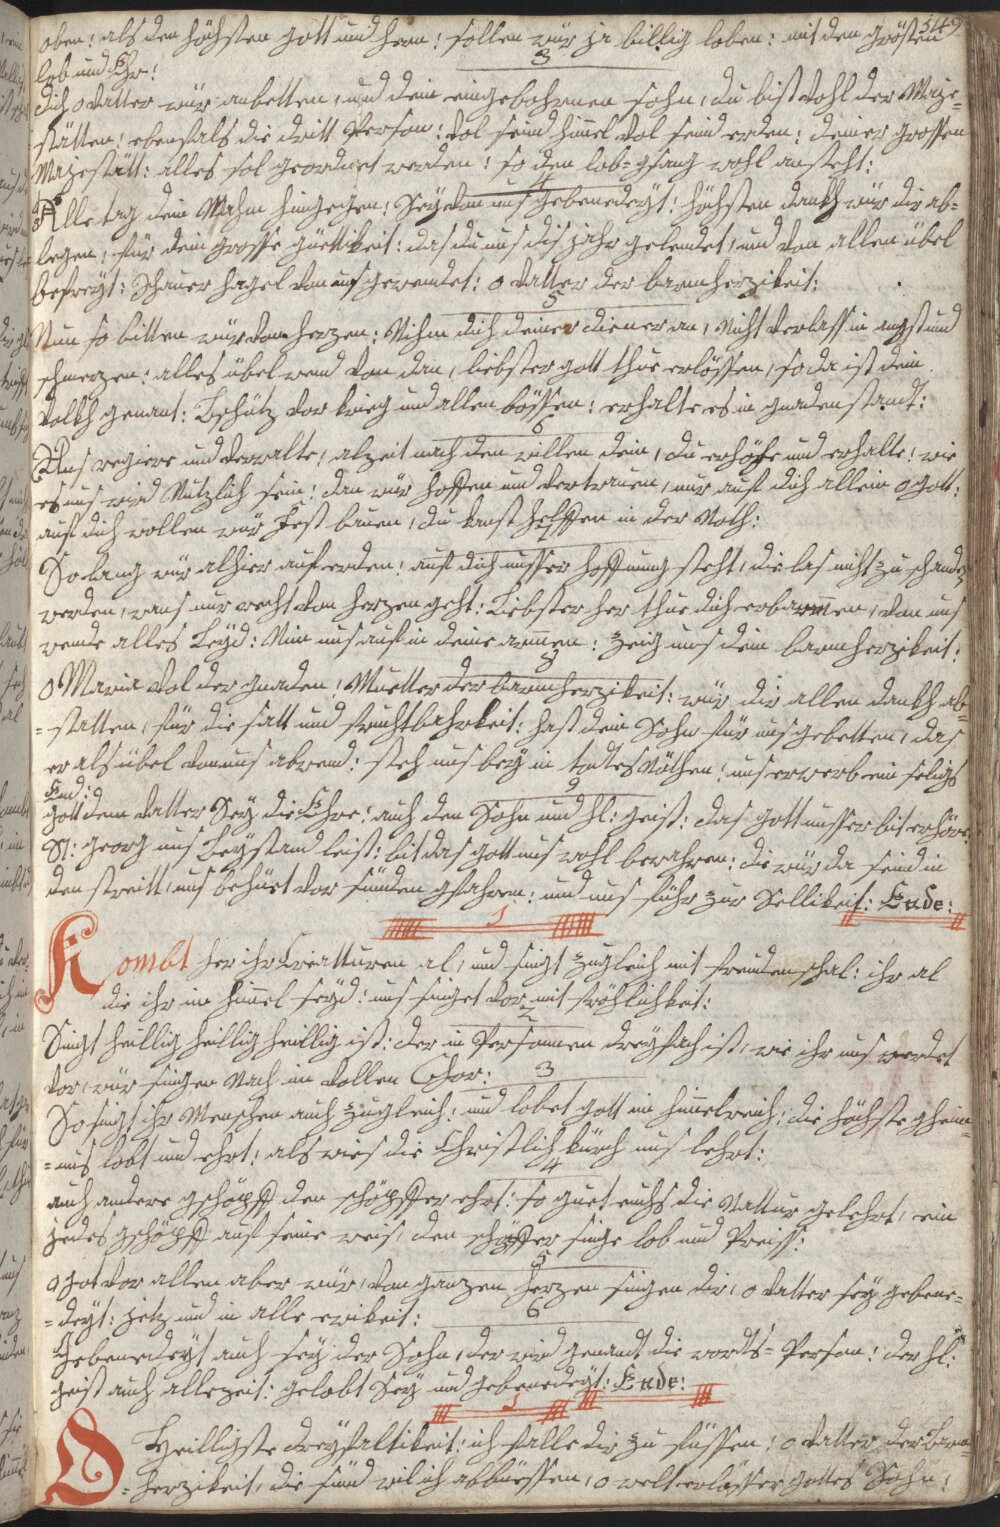 349
oben: als den höchsten gott und herrn: sollen wür ja billig loben: mit den grösten
lob und Ehr:
3
dich o vatter wür anbetten, und dein eingebohrnen sohn, du bist vohl der Maje-
stätten: ebenfals die dritt Person: vol seind himel vol seind erden: deiner grossen
Majestätt: alles sol geordnet werden: so den lob-gsang wohl ansteht:
4
Alle tag dein Nahm hingegen: Sey von uns gebenedeyt: höchsten dankh wür dir ab-
legen, für dein grosse güettikeit: das du uns dis jahr gelendet, und von allen übel
befreyt: schauer hagel von uns gewendet: o vatter der barmherzikeit:
5
Nun so bitten wür von herzen: Nihm dich deiner diener an, nicht verlass in angst und
schmerzen: alles übel wend von dan, liebster gott thue erlössen, so da ist dein
volkh genant: Bschütz vor krieg und allen bössen: erhalte es in gnaden standt:
6
Uns regiere und verwalte, alzeit nach den willen dein, du erhöhe und erhalte: wie
es uns wird Nutzlich sein: dan wür hoffen und vertrauen, nur auf dich allein o gott:
auf dich wollen wür Fest bauen, du kanst helffen in der Noth:
7
So lang wür alhier auf erden: auf dich unsser hoffnung steht, die las nicht zu schanden
werden, wans nur recht von herzen geht: Liebster her thue dich erbarmen, von uns
wende alles Leyd: Nim uns auf in deine armen: zeig uns dein barmherzikeit:
8
O Maria vol der gnaden: Muetter der barmherzikeit: wür dir allen dankh ab-
=statten, für die satt und fruchtbahrkeit: hast dein Sohn für uns gebetten, das
er als übel von uns abwend: steh uns bey in todtes Nöthen: uns erwerb ein seligs
End:
9
Gott dem vatter Sey die Ehre: auch den Sohn und hl: geist: das gott unsser bit erhöre:
St: Georg uns Beystand leist: bit das gott uns wohl bewahren: die wür da seind in
den streitt, uns behüet vor sünden gfahren: und uns führ zur Sellikeit: Ende:
1
Kombt her ihr Creatturen al, und singt zugleich mit freuden schal: ihr al
die ihr im himel seyd: uns singet vor mit fröhlichkeit:
2
Singt heillig heillig heillig ist: der in Personnen dreyfach ist, wie ihr uns werdet
vor, wür singen Nach im vollen Chor:
3
So singt ihr Menschen auch zugleich: und lobet gott im himelreich: die höchste gheim-
=nus lobt und ehrt: als wies die Christlich kürch uns lehrt:
4
auch andere gschöpff den schöpffer ehrt: so guet euchs die Nattur gelehrt, ein
jedes gschöpff auf seine weis, den schöpffer singe lob und Preiss:
5
O gott vor allen aber wür, von ganzen herzen singen dir, o vatter sey gebene-
=deyt: jetz und in alle ewikeit:
6
Gebenedeyt auch sey der Sohn, der wird genandt die worts-Person: der hl:
geist auch allezeit: gelobt Sey und gebenedeyt: Ende:
1
O Heilligste dreyfaltikeit: ich falle dir zu füssen: o vatter der barm-
=herzikeit, die sünd wil ich abbüessen, o welt erlösser gottes Sohn: